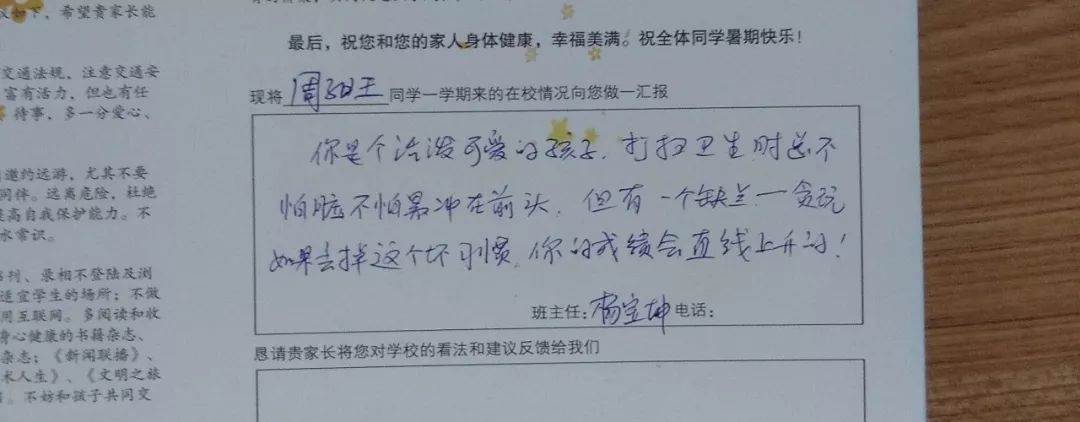 议如下，希望贵家长能
交通法规，注意交通安
富有活力，但也有任
待事，多一分爱心、
邀约远游，尤其不要
同伴。远离危险，杜绝
提高自我保护能力。不
水常识。
书刊、录相不登陆及浏
适宜学生的场所；不做
用互联网。多阅读和收
身心健康的书籍杂志、
杂志；《新闻联播》、
术人生》、《文明之旅
。不妨和孩子共同交
最后，祝您和您的家人身体健康，幸福美满。祝全体同学暑期快乐！
现将 周 王 同学一学期来的在校情况向您做一汇报
你是个活泼可爱的孩子，打扫卫生时总不
怕脏不怕累冲在前头，但有一个缺点一贪玩
如果去掉这个坏习惯，你的成绩会直线上升的！
班主任：杨宝坤 电话：
恳请贵家长将您对学校的看法和建议反馈给我们